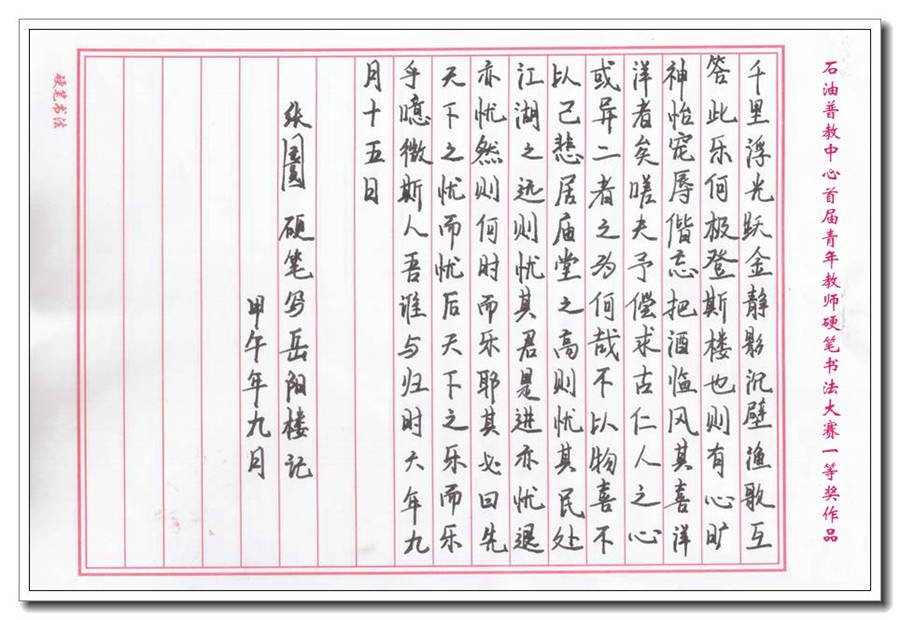 石油普教中心首届青年教师硬笔书法大赛一等奖作品
千里浮光跃金静影沉壁渔歌互
答此乐何极登斯楼也则有心旷
神怡宠辱偕忘把酒临风其喜洋
洋者矣嗟夫予偿求古仁人之心
或异二者之为何哉不以物喜不
以己悲居庙堂之高则忧其民处
江湖之远则忧其君是进亦忧退
亦忧然则何时而乐耶其必曰先
天下之忧而忧后天下之乐而乐
乎噫微斯人吾谁与归时六年九
月十五日
张 硬笔写岳阳楼记
甲午年九月
硬笔书法